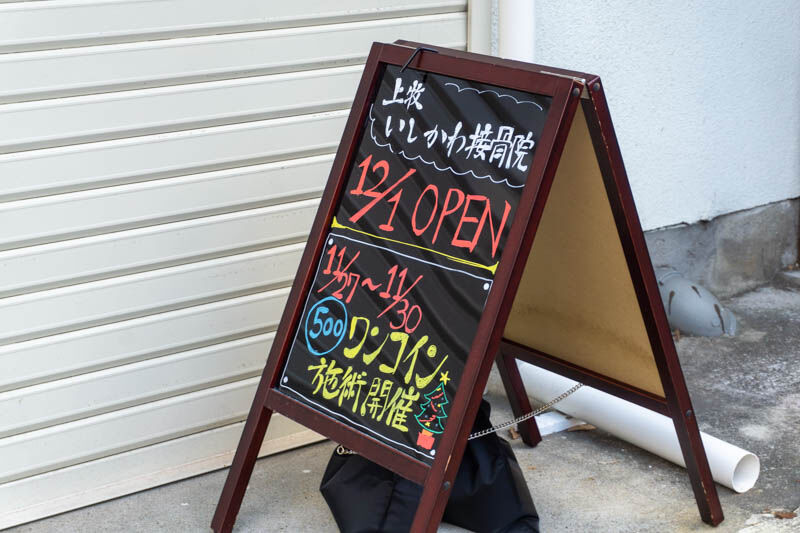 上牧
いしかわ接骨院
12/1 OPEN
11/27～11/30
500 ワンコイン
施術開催